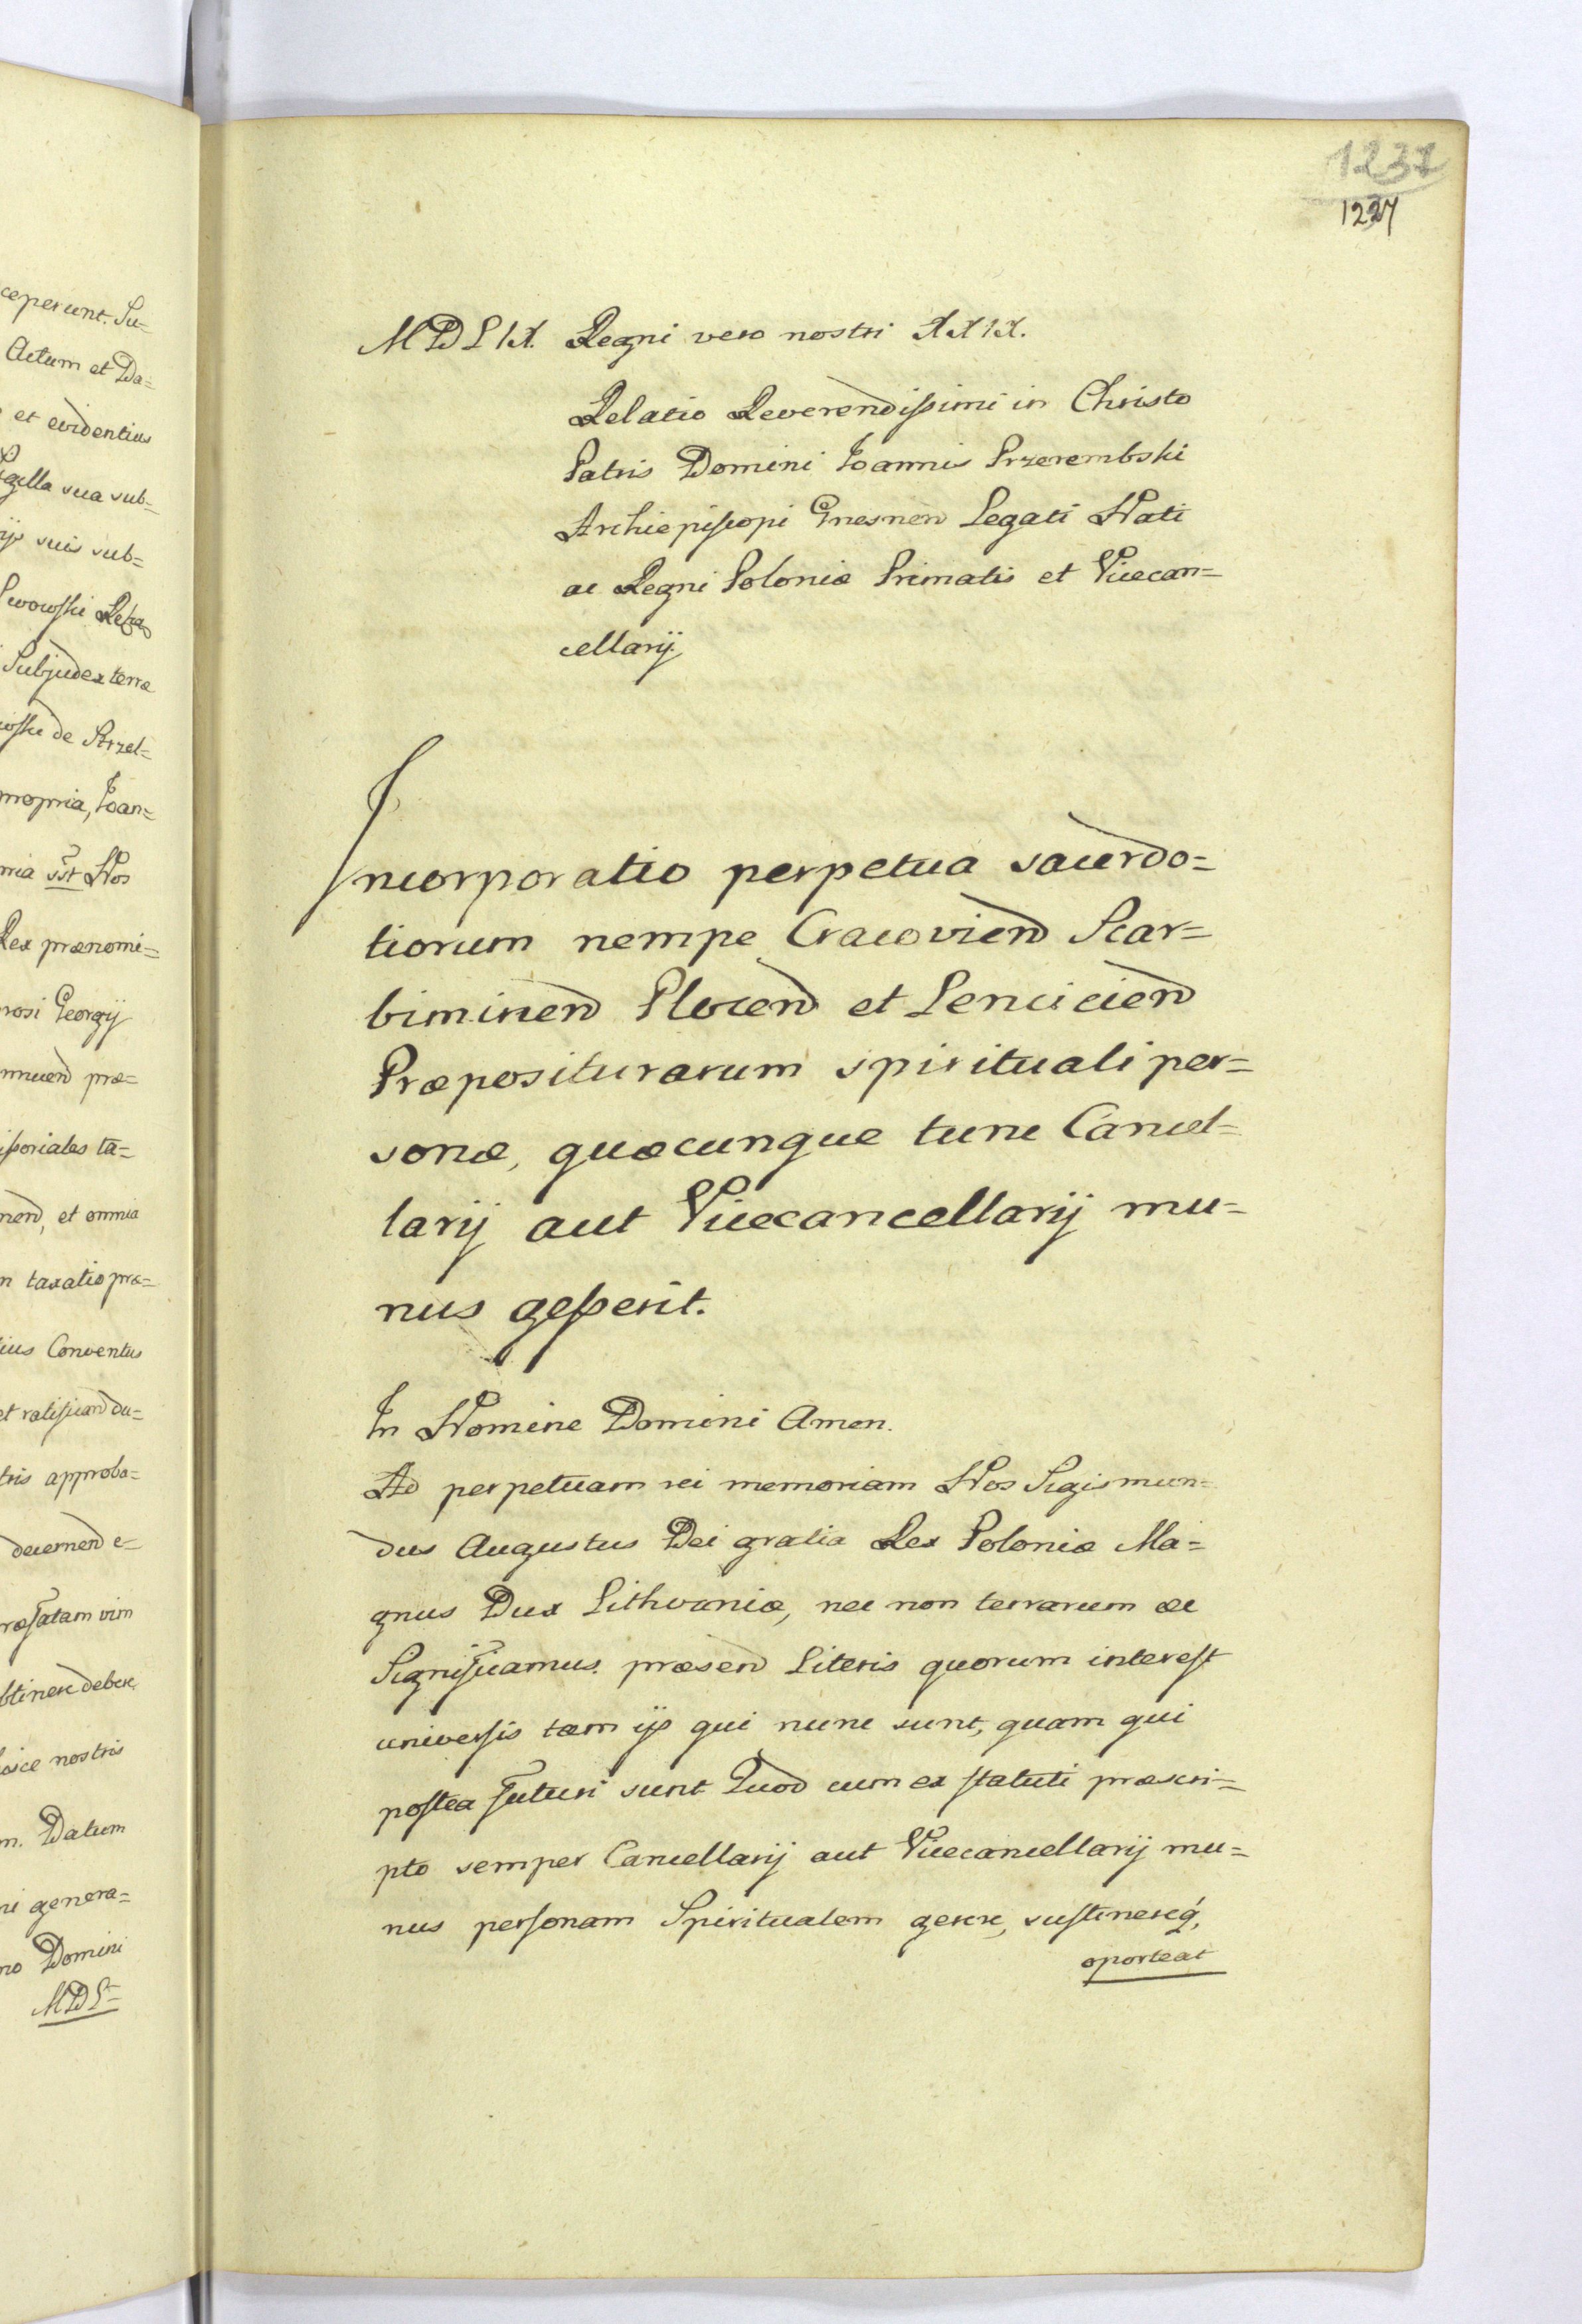 ceperunt. Su=
Actum et Da=
et evidentius
sua sub=
suis sub=
Subjudex terræ
de Strzel=
propria, Joan=
Nos
Rex prænomi=
Georgij
præ=
ta=
et omnia
taxatio præ=
Conventus
et ratificand du=
approba=
decernend e=
præfatam vim
obtinere debere
nostris
Datum
genera=
Domini
MDL=
1231
1227
MDLIX. Regni vero nostri XXIX.
Relatio Reverendissimi in Christo
Patris Domini Joannis Przerembski
Archiepiscopi Gnesnen Legati Nati
ac Regni Poloniæ Primatis et Vicecan=
cellarij
Incorporatio perpetua sacerdo=
tiorum nempe Cracovien Scar=
bimirien Plocen et Lencicien
Præpositurarum spirituali per=
sonæ, quæcunque tunc Cancel=
larij aut Vicecancellarij mu=
nus gesserit.
In Nomine Domini Amen.
Ad perpetuam rei memoriam Nos Sigismun=
dus Augustus Dei gratia Rex Poloniæ Ma=
gnus Dux Lithvaniæ, nec non terrarum ac
Significamus. præsen Literis quorum interest
universis tam ijs qui nunc sunt, quam qui
postea futuri sunt Quod cum ex statuti præscri=
pto semper Cancellarij aut Vicecancellarij mu=
nus personam Spiritualem gerere, sustinereq́,
oporteat